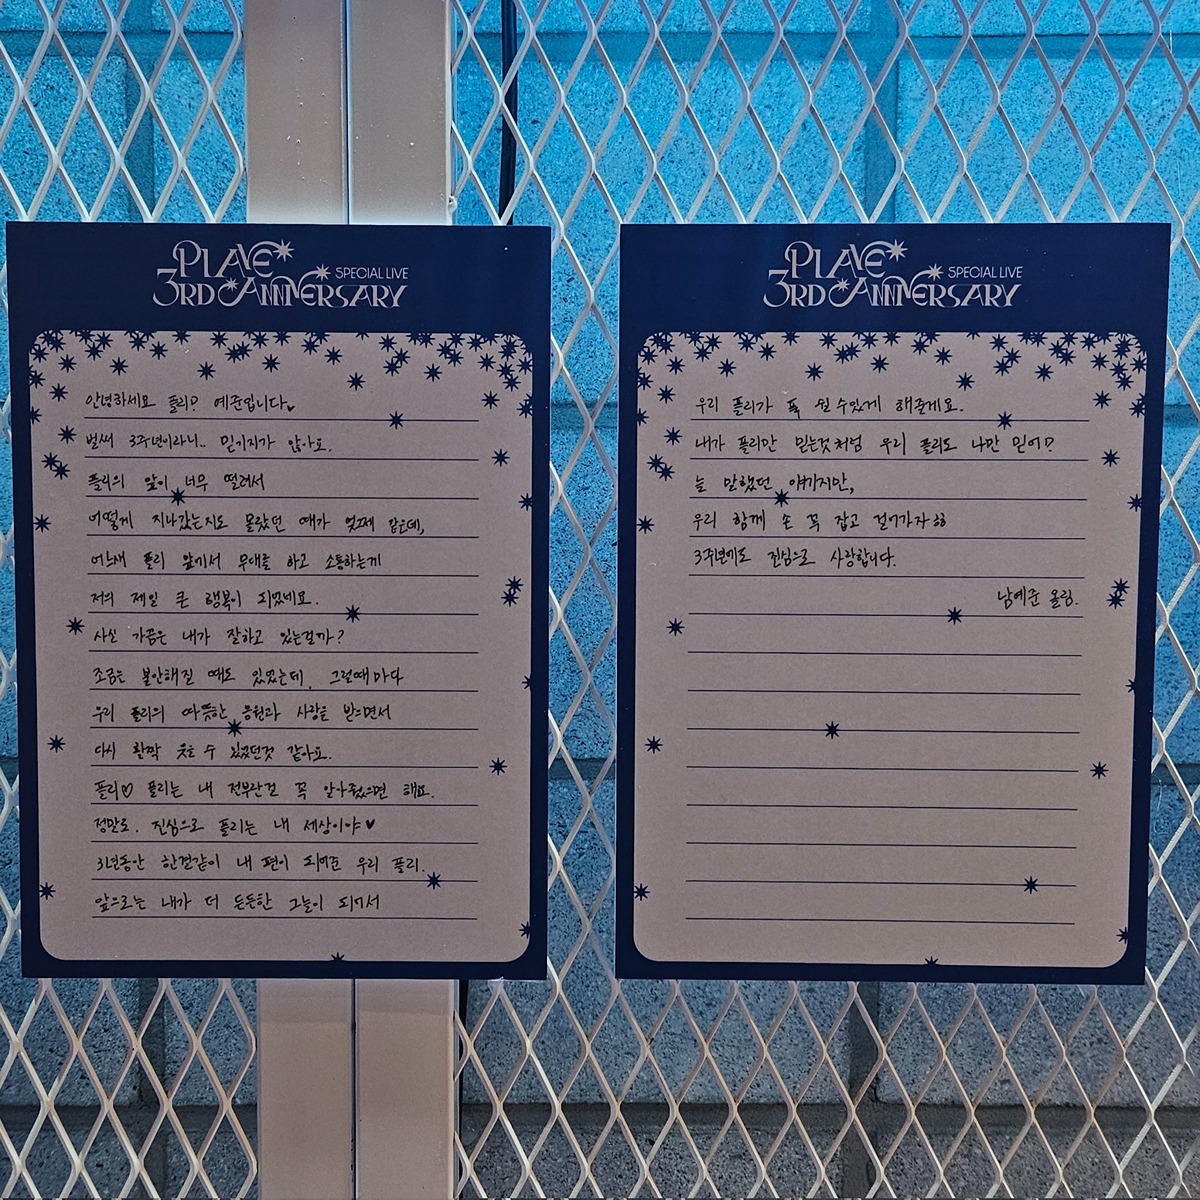 PLAVE
3RD ANNIVERSARY SPECIAL LIVE
안녕하세요 플리? 예준입니다♥
벌써 3주년이라니.. 믿기지가 않아요.
플리의 앞이 너무 떨려서
어떻게 지나갔는지도 몰랐던 때가 엊그제 같은데,
어느새 플리 앞에서 무대를 하고 소통하는게
저의 제일 큰 행복이 되었네요.
사실 가끔은 내가 잘하고 있는걸까?
조금은 불안해질 때도 있었는데, 그럴때마다
우리 플리의 따뜻한 응원과 사랑을 받으면서
다시 활짝 웃을 수 있었던것 같아요.
플리♡ 플리는 내 전부란걸 꼭 알아줬으면 해요.
정말로. 진심으로 플리는 내 세상이야♥
3년동안 한결같이 내 편이 되어준 우리 플리.
앞으로는 내가 더 든든한 그늘이 되어서
PLAVE
3RD ANNIVERSARY SPECIAL LIVE
우리 플리가 푹 쉴 수있게 해줄게요.
내가 플리만 믿는것처럼 우리 플리도 나만 믿어?
늘 말했던 얘기지만,
우리 함께 손 꼭 잡고 걸어가자ㅎㅎ
3주년에도 진심으로 사랑합니다.
남예준 올림.